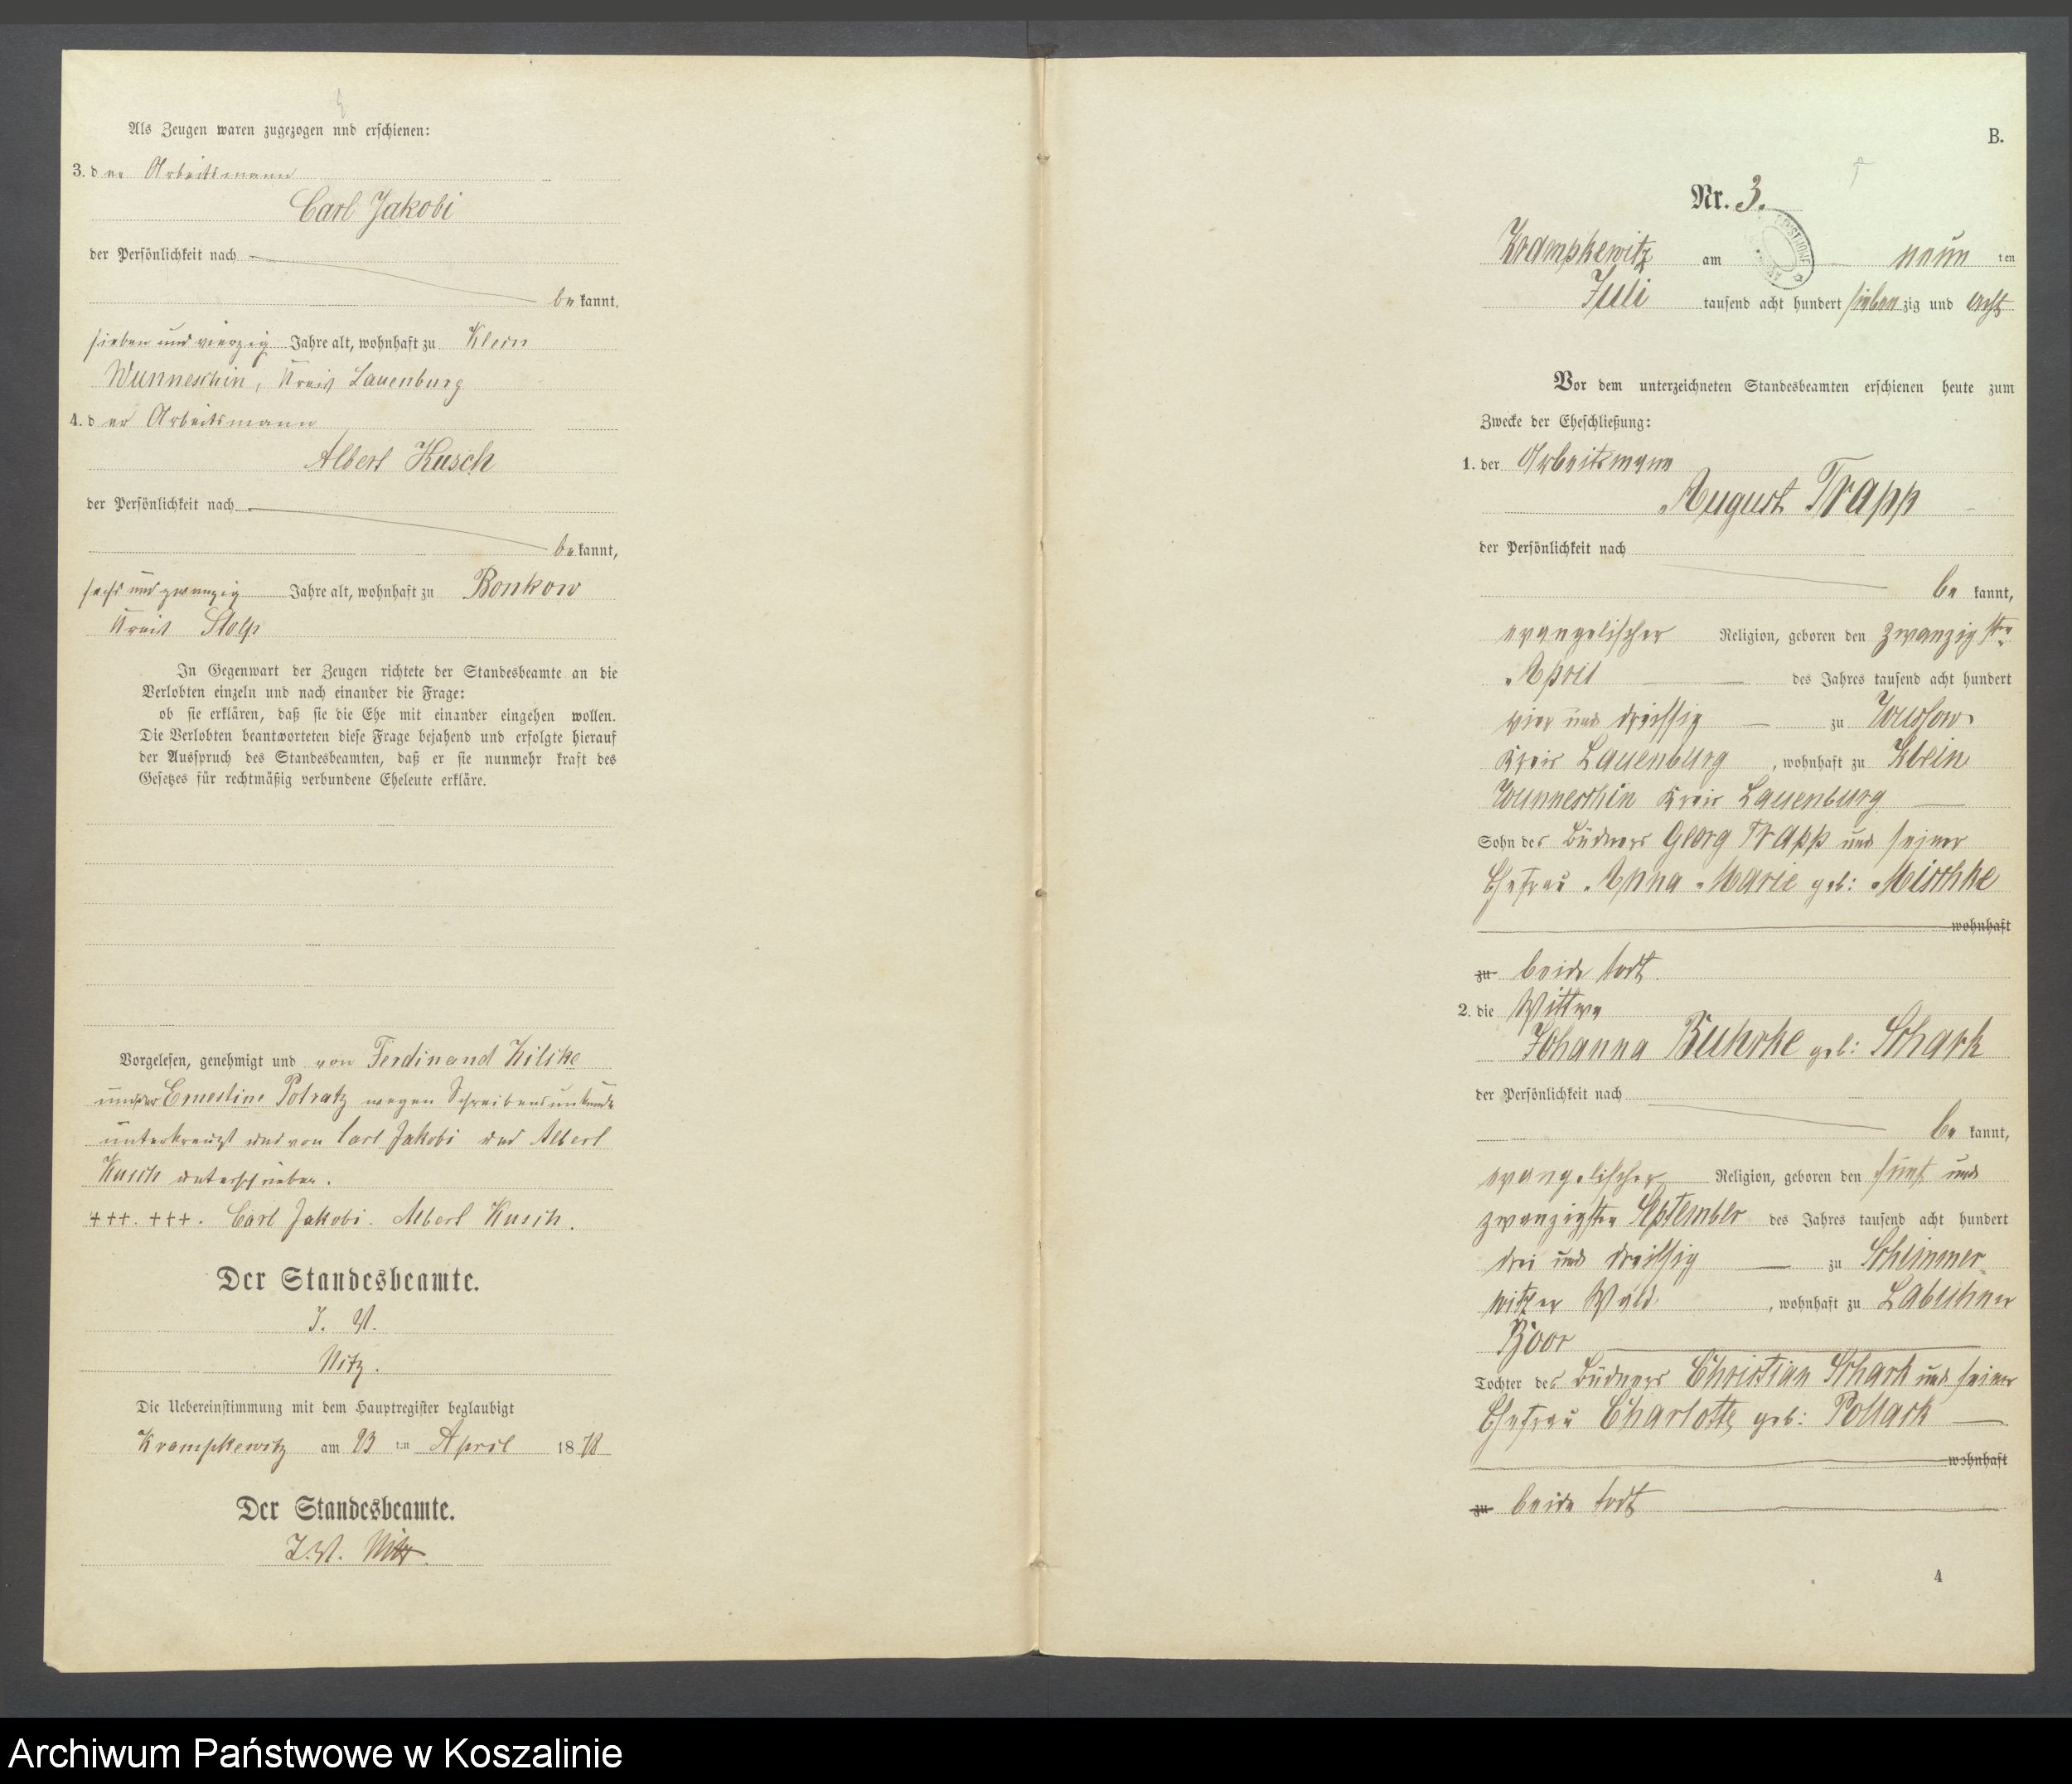 Als Zeugen waren zugezogen nnd erschienen:
3. der Arbeitsmann
Carl Jakobi
der Persönlichkeit nach
bekannt,
sieben und vierzig Jahre alt, wohnhaft zu Klein
Wunneschin, Kreis Lauenburg
4. der Arbeitsmann
Albert Kusch
der Persönlichkeit nach
bekannt,
sechs und zwanzig Jahre alt, wohnhaft zu Bonkow
Kreis Stolp
In Gegenwart der Zeugen richtete der Standesbeamte an die
Verlobten einzeln und nach einander die Frage:
ob sie erklären, daß sie die Ehe mit einander eingehen wollen.
Die Verlobten beantworteten diese Frage bejahend und erfolgte hierauf
der Ausspruch des Standesbeamten, daß er sie nunmehr kraft des
Gesetzes für rechtmäßig verbundene Eheleute erkläre.
Vorgelesen, genehmigt und von Ferdinand
und der Ernestine Potratz wegen Schreibensunkunde
unterkreuzt und von Carl Jakobi und Albert
Kusch unterschrieben.
+++. +++. Carl Jakobi. Albert Kusch.
Der Standesbeamte.
I. V.
Nitz.
Die Uebereinstimmung mit dem Hauptregister beglaubigt
Krampkewitz am 23 ten April 1878
Der Standesbeamte.
I.V. Nitz.
B.
Nr. 3.
Krampkewitz am neun ten
Juli tausend acht hundert siebenzig und acht
Vor dem unterzeichneten Standesbeamten erschienen heute zum
Zwecke der Eheschließung:
1. der Arbeitsmann
August Trapp
der Persönlichkeit nach
bekannt,
evangelischer Religion, geboren den zwanzigsten
April des Jahres tausend acht hundert
vier und dreissig zu Wussow
Kreis Lauenburg, wohnhaft zu Klein
Wunneschin Kreis Lauenburg
Sohn des Büdners Georg Trapp und seiner
Ehefrau Anna Marie geb: Mischke
wohnhaft
zu beide todt.
2. die Wittwe
Johanna Buhrke geb: Schark
der Persönlichkeit nach
bekannt,
evangelischer Religion, geboren den fünf und
zwanzigsten September des Jahres tausend acht hundert
drei und dreissig zu Schimmer-
witzer Wald, wohnhaft zu Labuhner
Tochter des Büdners Christian Schark und seiner
Ehefrau Charlotte geb: Pollack
wohnhaft
zu beide todt
4
Archiwum Państwowe w Koszalinie